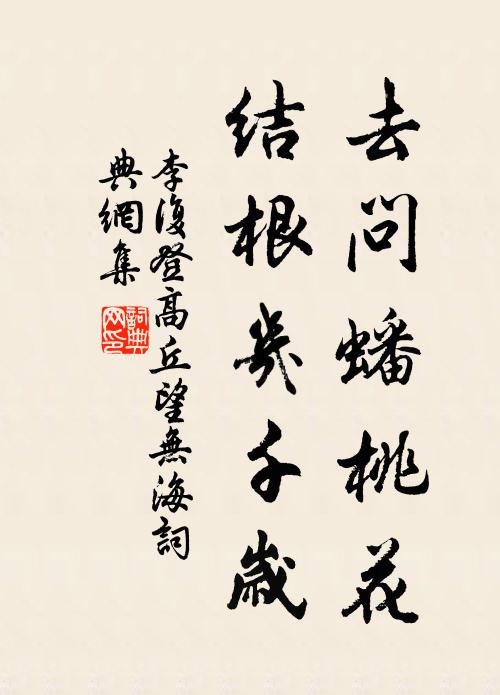 去问蟠桃花
结根几千歳
李復登高丘望無海詞
典網集
詞典网印